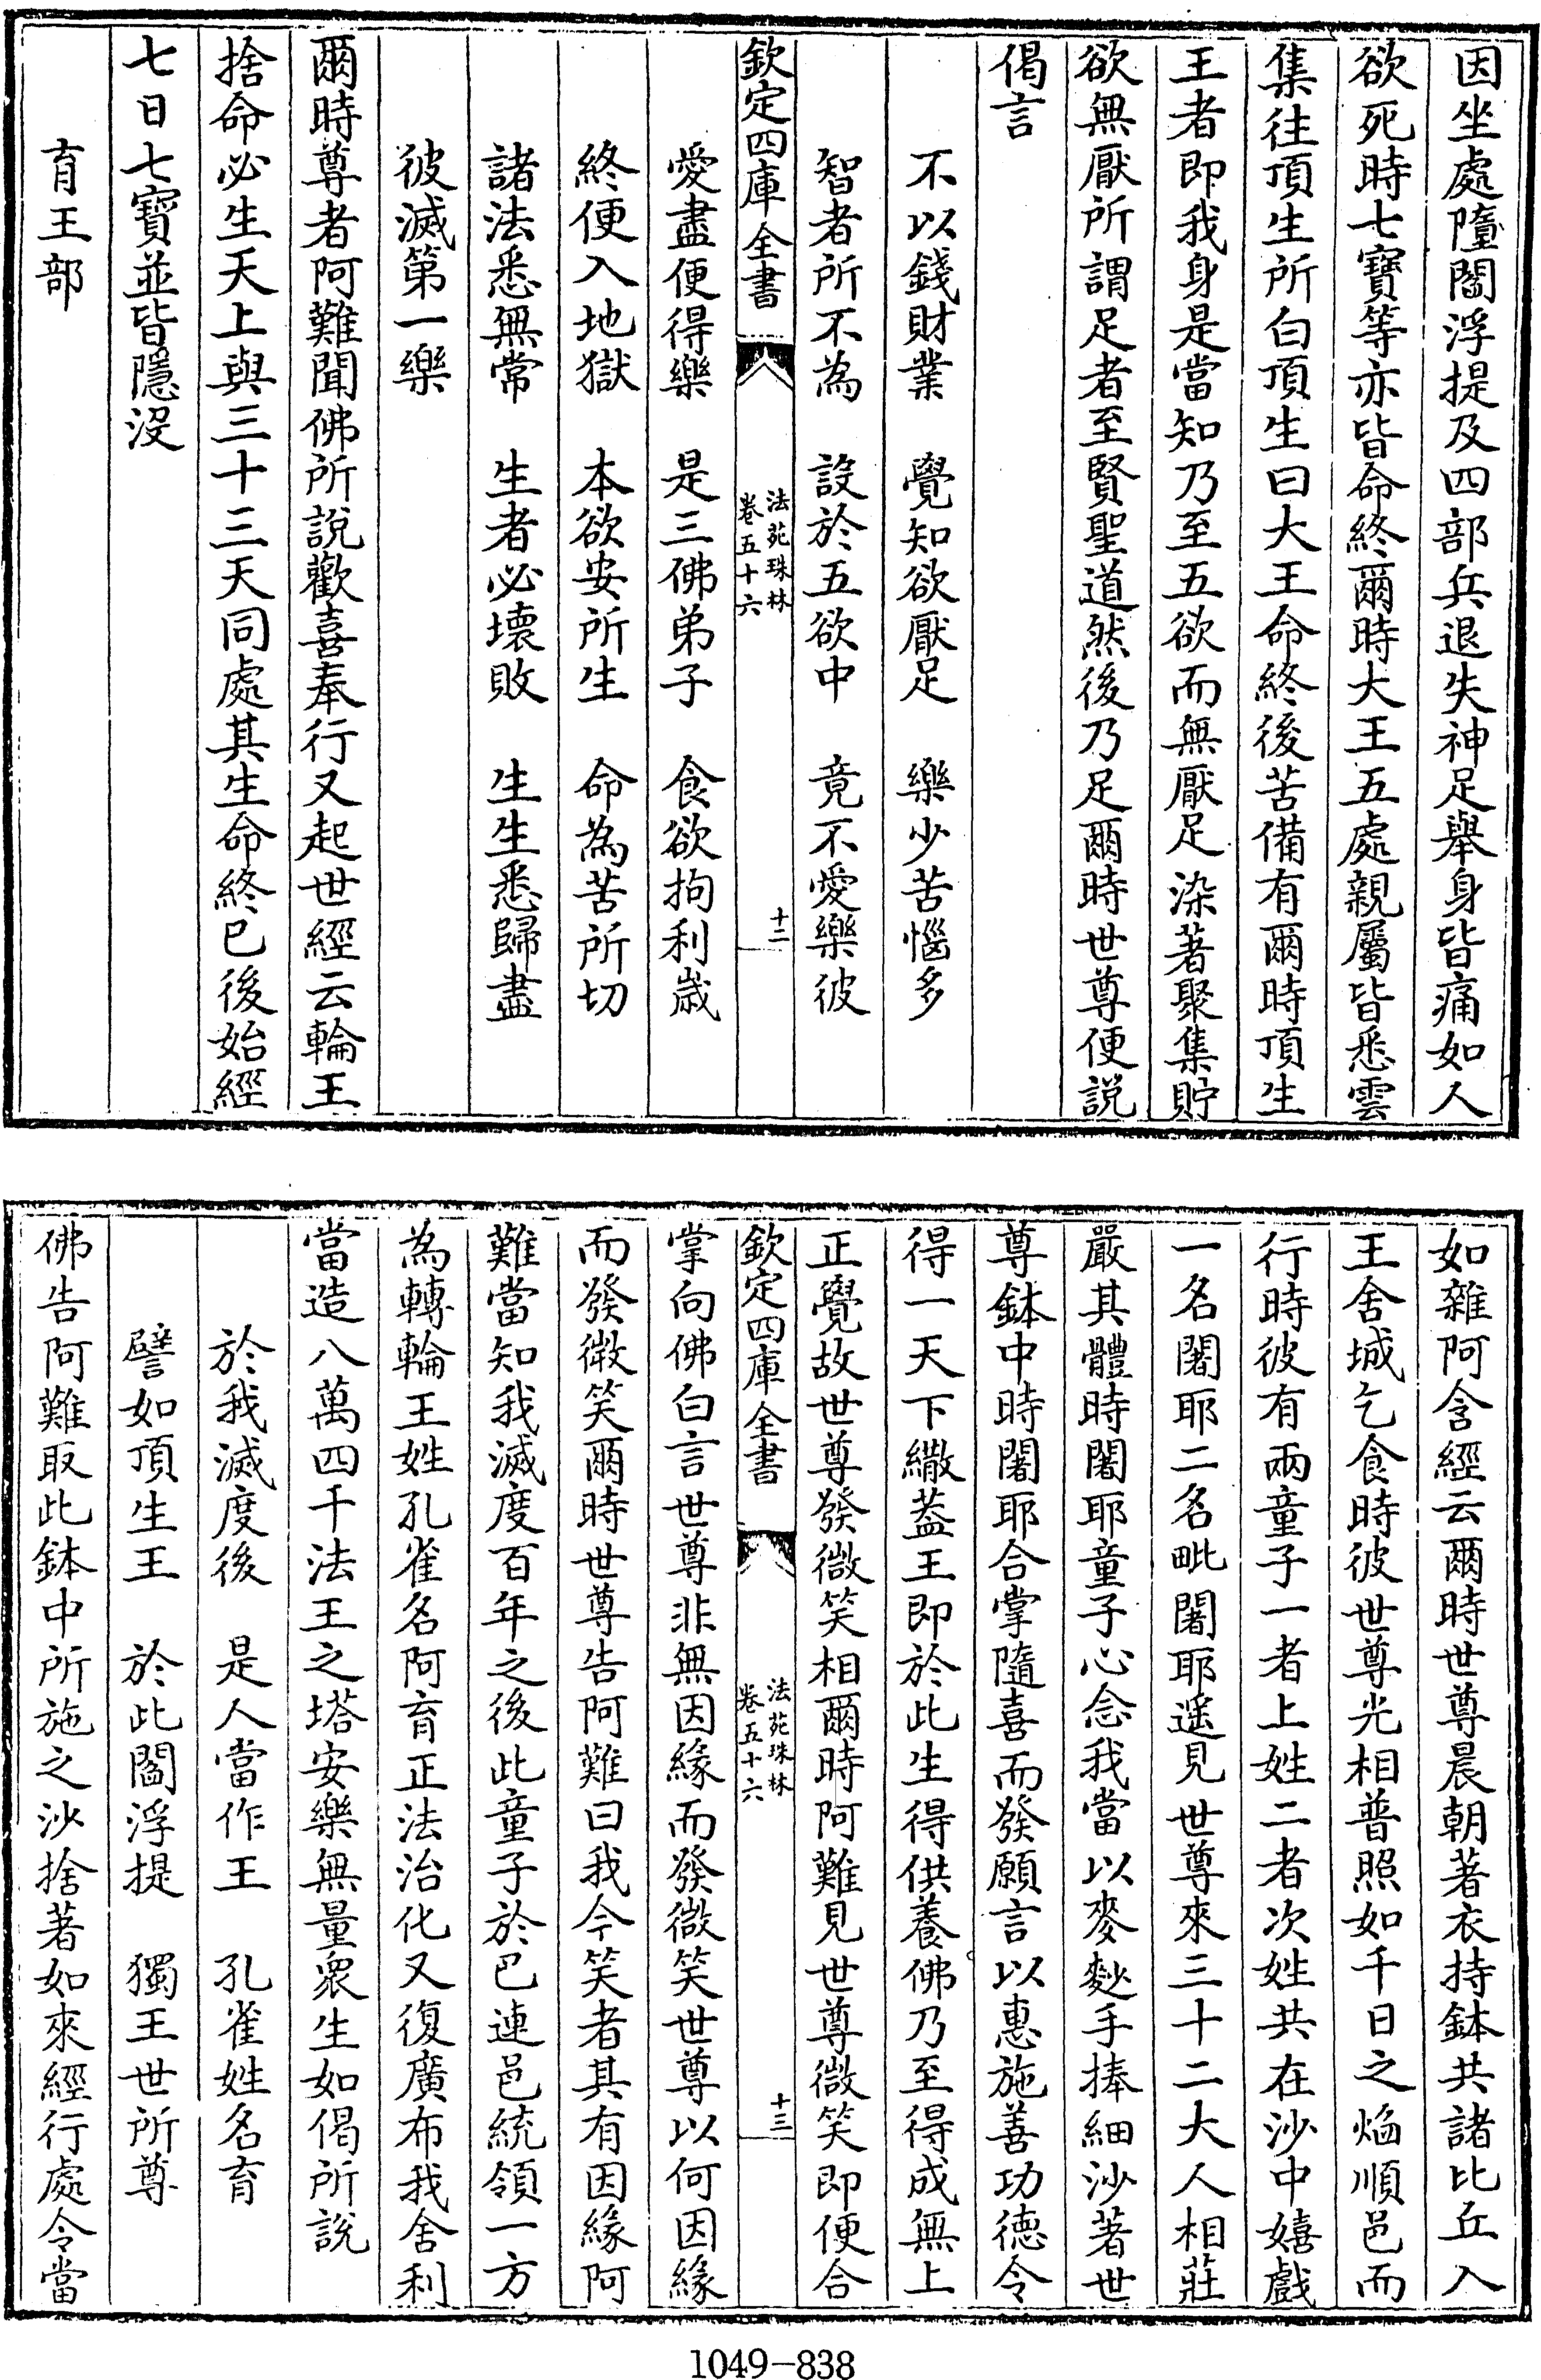 因坐處墮閻浮提及四部兵退失神足舉身皆痛如人
欲死時七寶等亦皆命終爾時大王五處親屬皆悉雲
集往頂生所白頂生曰大王命終後苦備有爾時頂生
王者即我身是當知乃至五欲而無厭足染著聚集貯
欲無厭所謂足者至賢聖道然後乃足爾時世尊便說
偈言
不以錢財業　覺知欲厭足　樂少苦惱多
智者所不為　設於五欲中　竟不愛樂彼
欽定四庫全書　法苑珠林卷五十六　十二
愛盡便得樂　是三佛弟子　食欲拘利歲
終便入地獄　本欲安所生　命為苦所切
諸法悉無常　生者必壞敗　生生悉歸盡
彼滅第一樂
爾時尊者阿難聞佛所說歡喜奉行又起世經云輪王
捨命必生天上與三十三天同處其生命終已後始經
七日七寶並皆隱沒
育王部
如雜阿含經云爾時世尊晨朝著衣持鉢共諸比丘入
王舍城乞食時彼世尊光相普照如千日之焰順邑而
行時彼有兩童子一者上姓二者次姓共在沙中嬉戲
一名闍耶二名毗闍耶遥見世尊來三十二大人相莊
嚴其體時闍耶童子心念我當以麥麨手捧細沙著世
尊鉢中時闍耶合掌隨喜而發願言以惠施善功德令
得一天下繖葢王即於此生得供養佛乃至得成無上
正覺故世尊發微笑相爾時阿難見世尊微笑即便合
欽定四庫全書　法苑珠林卷五十六　十三
掌向佛白言世尊非無因緣而發微笑世尊以何因緣
而發微笑爾時世尊告阿難曰我今笑者其有因緣阿
難當知我滅度百年之後此童子於巴連邑統領一方
為轉輪王姓孔雀名阿育正法治化又復廣布我舍利
當造八萬四千法王之塔安樂無量衆生如偈所說
於我滅度後　是人當作王　孔雀姓名育
譬如頂生王　於此閻浮提　獨王世所尊
佛告阿難取此鉢中所施之沙捨著如來經行處令當
1049-838